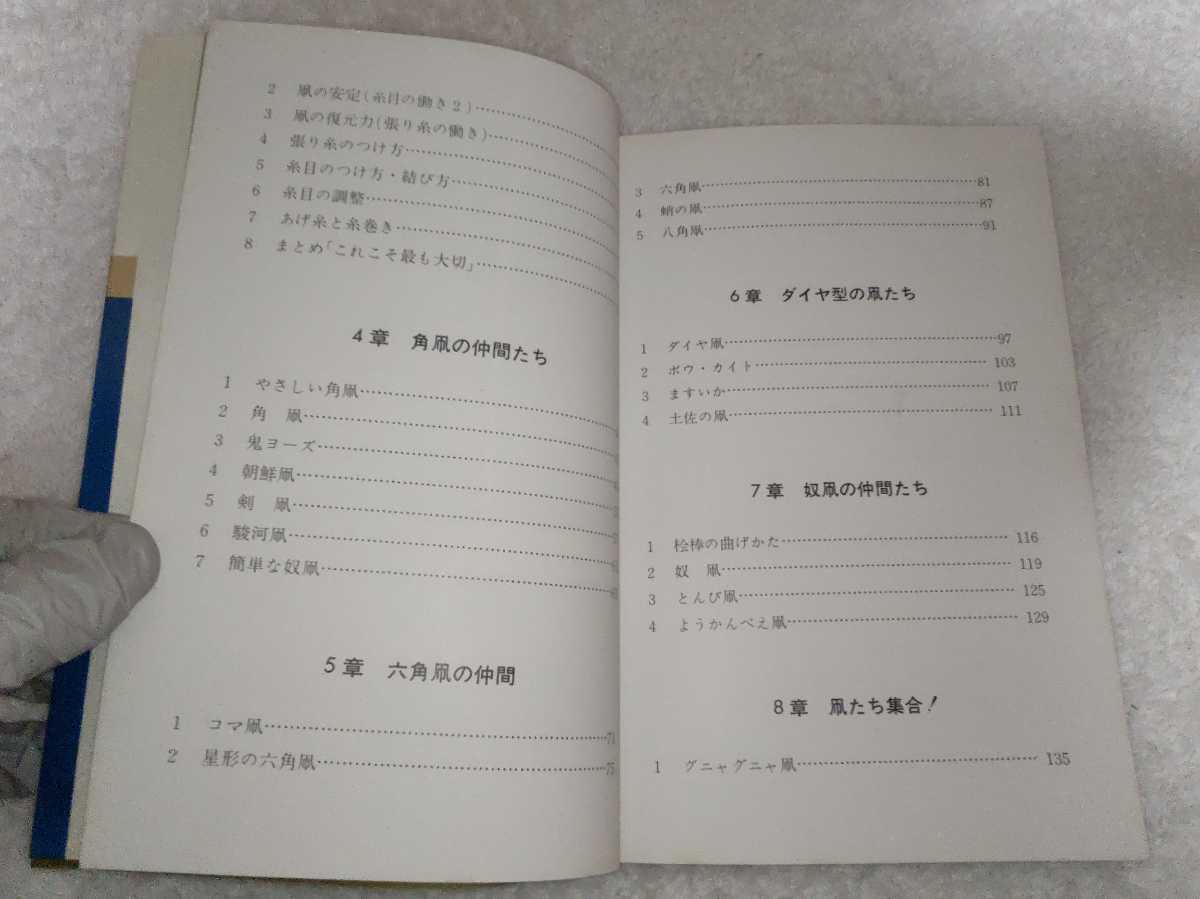 2 凧の安定(糸目の働き2)
3 凧の復元力(張り糸の働き)
4 張り糸のつけ方
5 糸目のつけ方・結び方
6 糸目の調整
7 あげ糸と糸巻き
8 まとめ「これこそ最も大切」
4章 角凧の仲間たち
1 やさしい角凧
2 角 凧
3 鬼ヨーズ
4 朝鮮凧
5 剣 凧
6 駿河凧
7 簡単な奴凧
5章 六角凧の仲間
1 コマ凧 71
2 星形の六角凧 75
3 六角凧 81
4 蛸の凧 87
5 八角凧 91
6章 ダイヤ型の凧たち
1 ダイヤ凧 97
2 ボウ・カイト 103
3 ますいか 107
4 土佐の凧 111
7章 奴凧の仲間たち
1 桧棒の曲げかた 116
2 奴 凧 119
3 とんび凧 125
4 ようかんべえ凧 129
8章 凧たち集合!
1 グニャグニャ凧 135